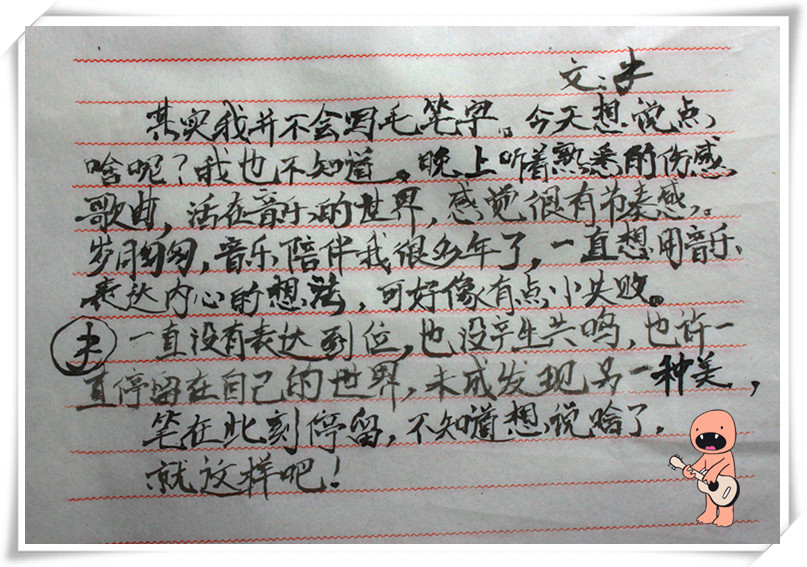 文:
其实我并不会写毛笔字。今天想说点
啥呢?我也不知道。晚上听着熟悉的伤感
歌曲,活在音乐的世界,感觉很有节奏感。
岁月匆匆,音乐陪伴我很多年了,一直想用音乐
表达内心的想法,可好像有点小失败。
一直没有表达到位,也没产生共鸣,也许一
直停留在自己的世界,未成发现另一种美,
笔在此刻停留,不知道想说啥了。
就这样吧!